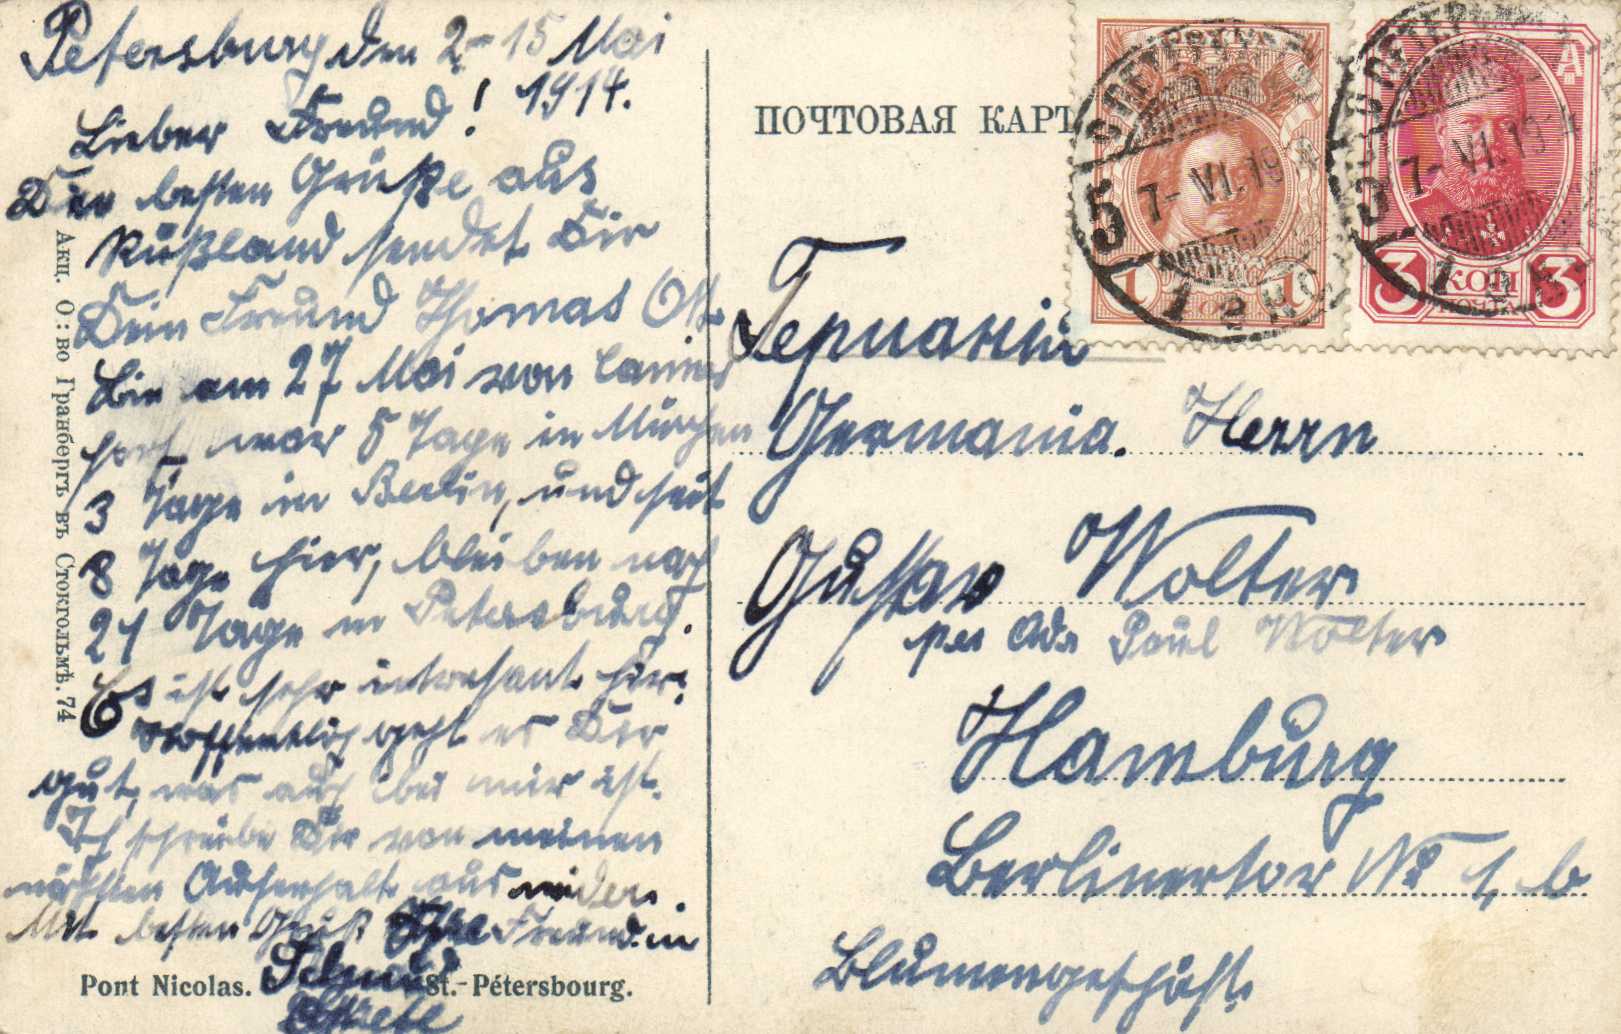 Petersburg den 2-15 Mai
1914.
Lieber Freund!
Die besten Grüße aus
Rußland sendet Dir
Dein Freund Thomas Ott
Bin am 27 Mai von
fort war 5 Tage in München
3 Tage in Berlin, und seit
8 Tage hier, bleiben noch
21 Tage in Petersburg.
Es ist sehr intresant hier.
Hoffentlich geht es Dir
gut, was auch bei mir ist.
Ich schreibe Dir von meinen
nächsten Aufenhalt aus wider.
Mit besten Gruß Freund in
Pont Nicolas. St.-Pétersbourg.
Акц. О:во Гранбергъ въ Стокгольмѣ. 74
ПОЧТОВАЯ КАРТ
1 КОП 1
3 КОП 3
ПОЧТА
5
7-VI.19
1
5
7-VI.19
1
Германія
Germania. Herrn
Gustav Wolter
per Adr Paul Wolter
Hamburg
Berlinertor No 1, b
Blumengeschäft